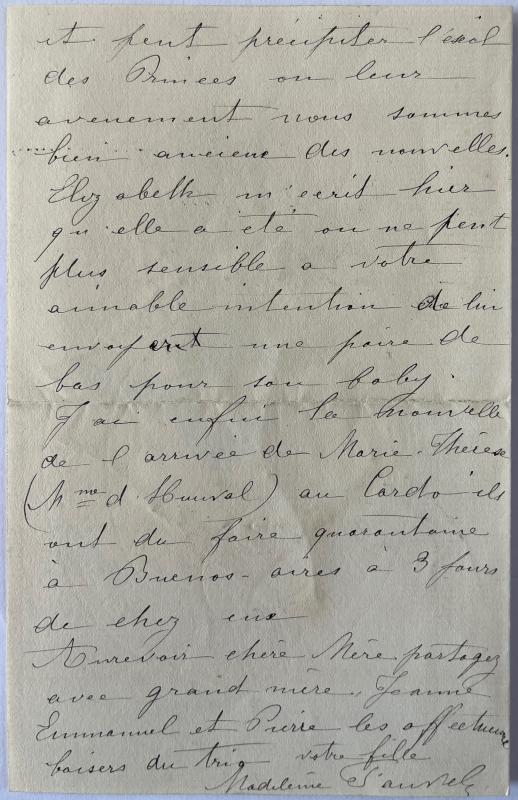 et peut précipiter l'éxil
des Princes ou leur
avenement nous sommes
bien anciene des nouvelles.
Elizabeth m'ecrit hier
qu'elle a été on ne peut
plus sensible a votre
aimable intention de lui
envoyent une paire de
bas pour son baby.
J'ai enfin la nouvelle
de l arrivée de Marie-Thérèse
(Mme d. ) au Cardo ils
ont du faire quarantaine
à Buenos-aires à 3 jours
de chez eux
Aurevoir chère Mère partagez
avec grand mère, Jeanne
Emmanuel et Pierre les affectueux
baisers du trio votre fille
Madeleine